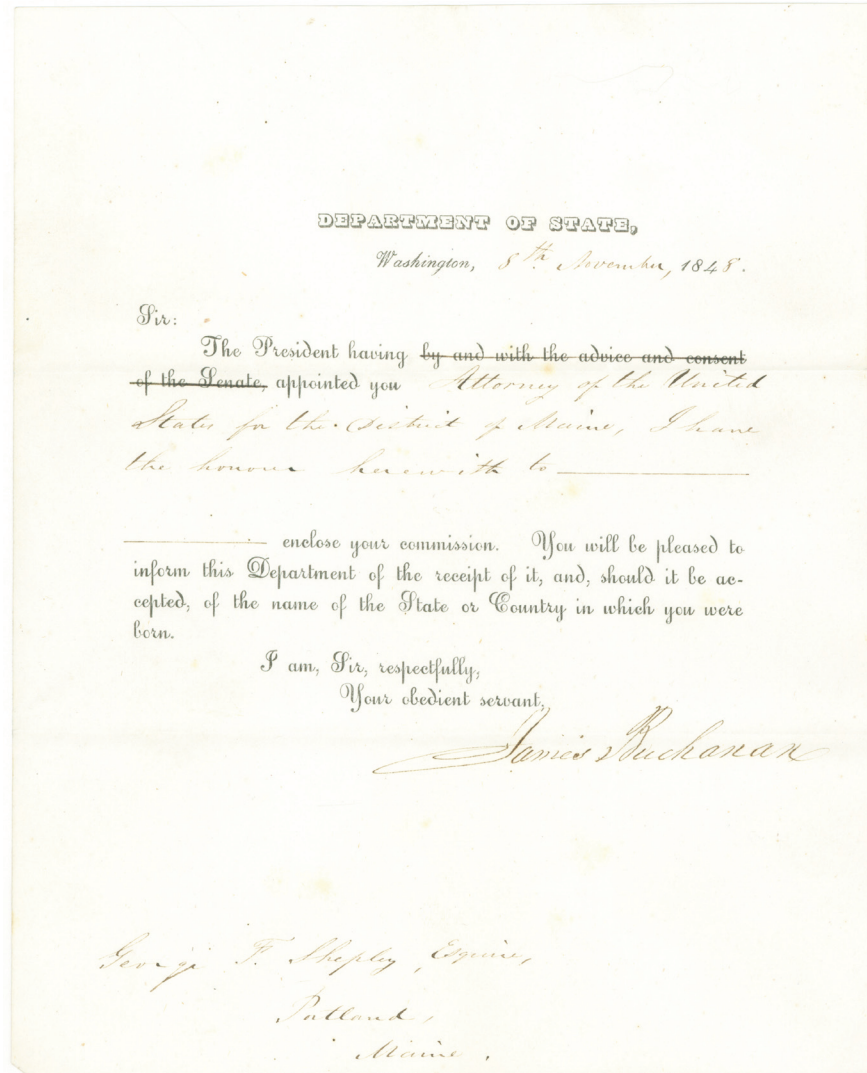 DEPARTMENT OF STATE,
Washington, 8th November, 1848.
Sir:
The President having by and with the advice and consent
of the Senate, appointed you Attorney of the United
States for the District of Maine, I have
the honour herewith to
enclose your commission. You will be pleased to
inform this Department of the receipt of it, and, should it be ac-
cepted, of the name of the State or Country in which you were
born.
I am, Sir, respectfully,
Your obedient servant,
James Buchanan
George F. Shepley, Esquire,
Portland,
Maine.